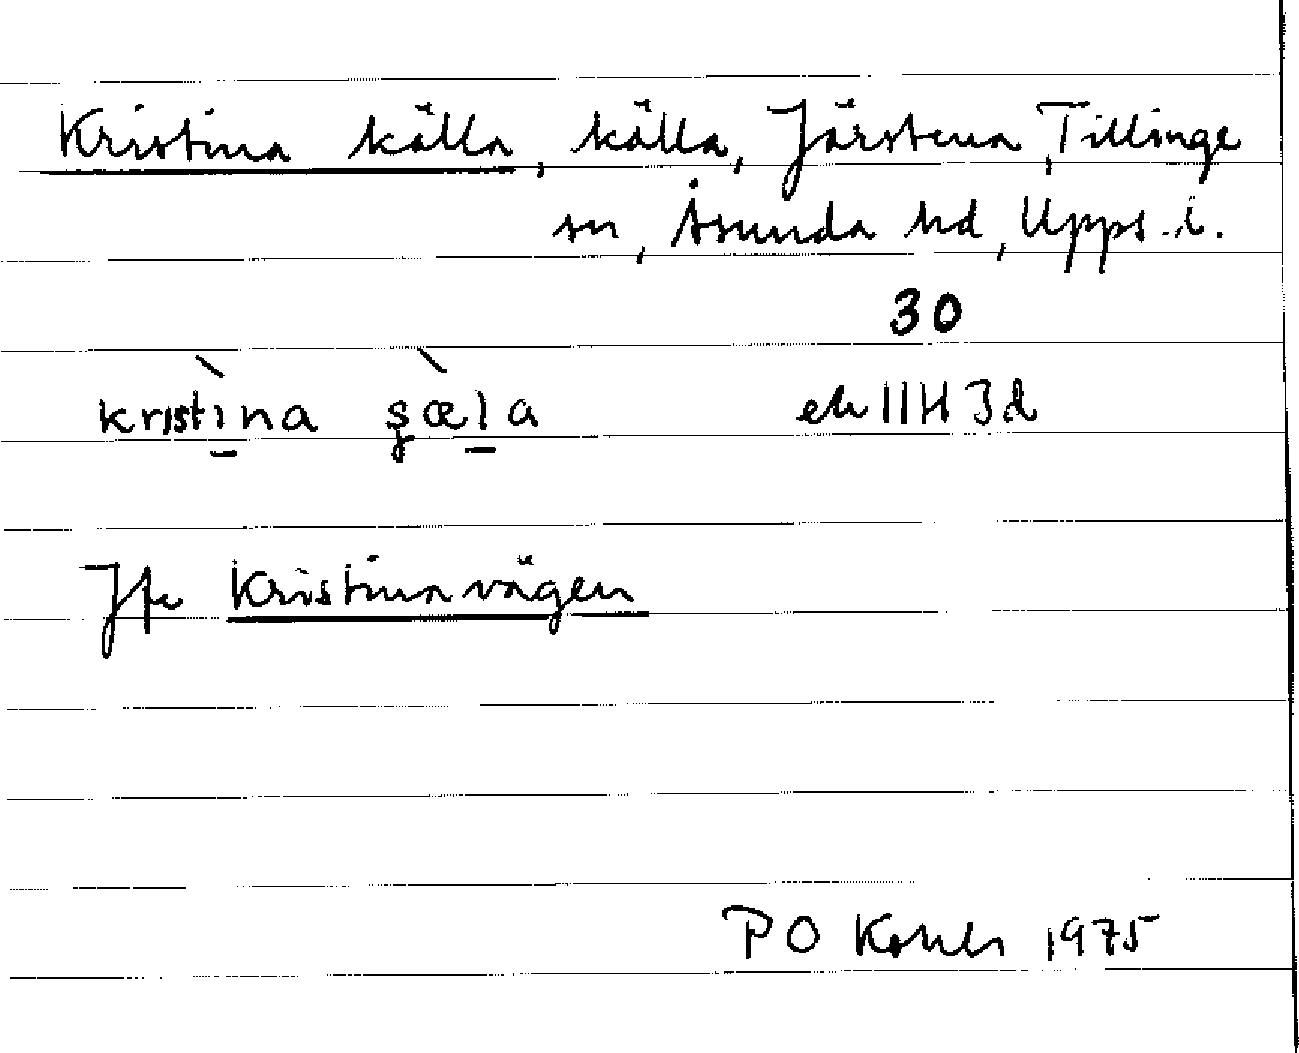 Kristina källa, källa, Järstena, Tillinge
sn, Åsunda hd, Upps. l.
30
kristìna ʂæ̀la ek 11H 3d
Jfr Kristinavägen
P O 1975